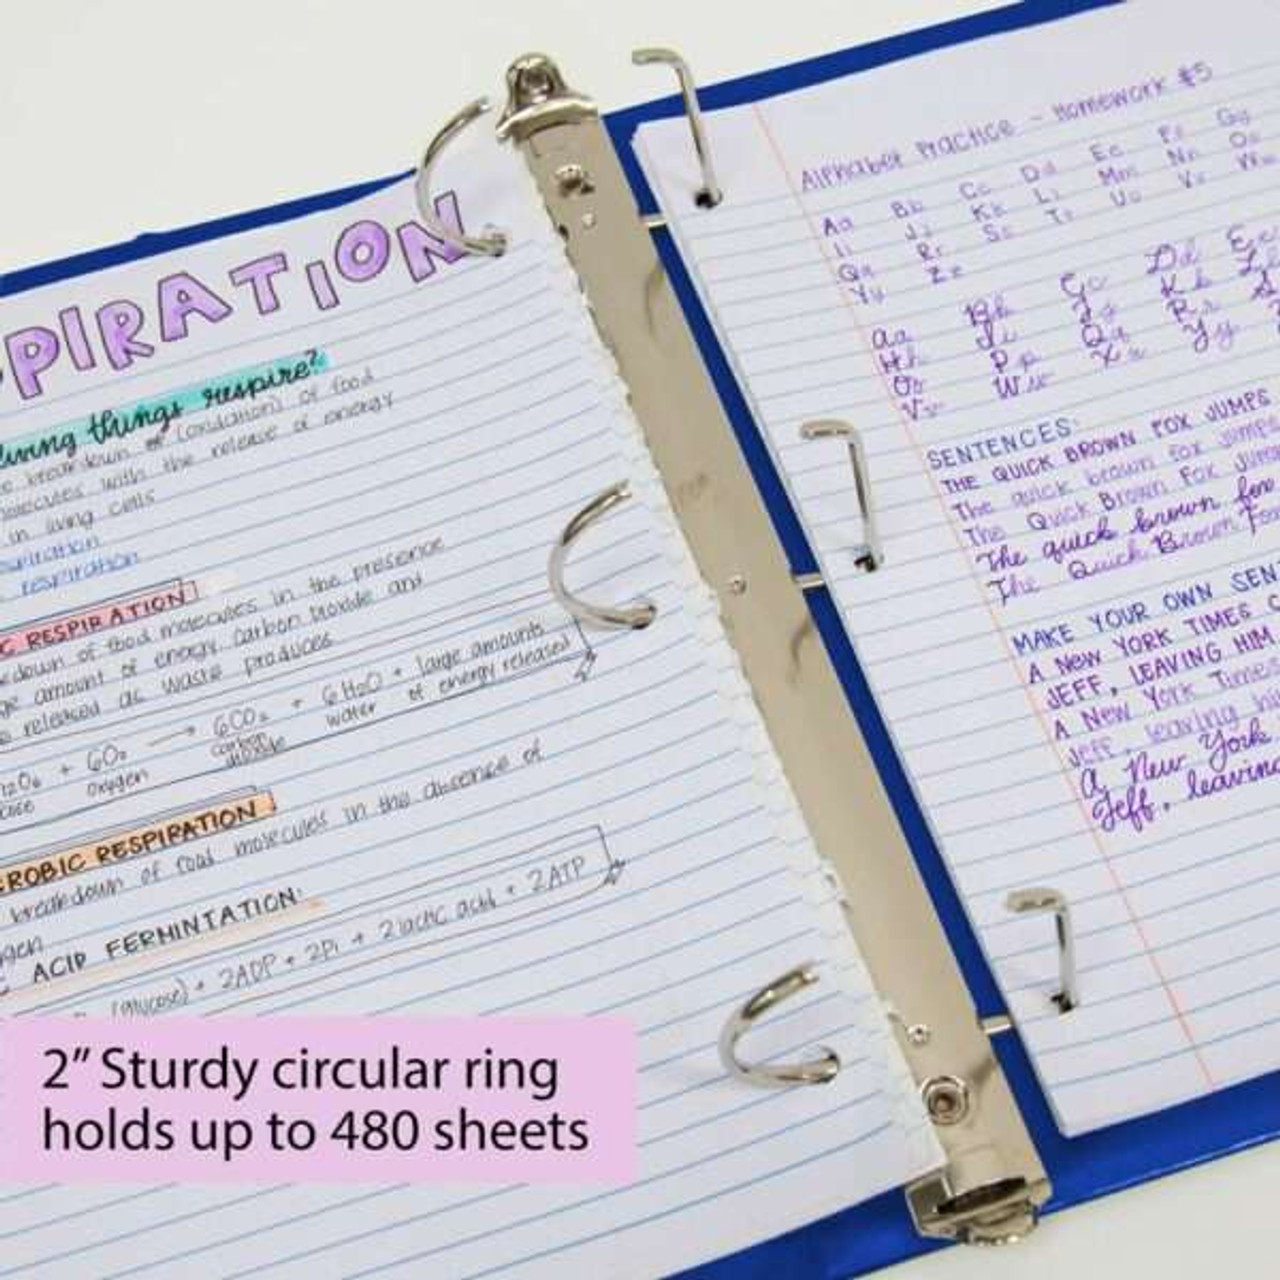 PIRATION
living things respire?
breakdown of (oxidation) of food
molecules with the release of energy
in living cells
respiration
respiration
C RESPIRATION
down of food molecules in the presence
amount of energy. Carbon Dioxide and
released as waste products
+ 6O₂ → 6CO₂ + 6H₂O + large amounts
oxygen carbon dioxide water of energy released
ROBIC RESPIRATION
breakdown of food molecules in the absence of
gen
ACID FERMINTATION:
(glucose) + 2ADP + 2Pi + 2 lactic acid + 2ATP
Alphabet Practice - Homework #5
Aa Bb Cc Dd Ee Ff Gg
Ii Jj Kk Ll Mm Nn Oo
Qq Rr Ss Tt Uu Vv Ww
Yy Zz
Aa Bb Cc Dd Ee
Hh Ii Jj Kk Ll
Oo Pp Qq Rr Ss
Vv Ww Xx Yy
SENTENCES:
THE QUICK BROWN FOX JUMPS
The quick brown fox jumps
The Quick Brown Fox Jump
The quick brown fox
The Quick Brown Fox
MAKE YOUR OWN SEN
A NEW YORK TIMES
JEFF, LEAVING HIM
A New York Times
Jeff, leaving him
A New York
Jeff, leaving
2” Sturdy circular ring
holds up to 480 sheets